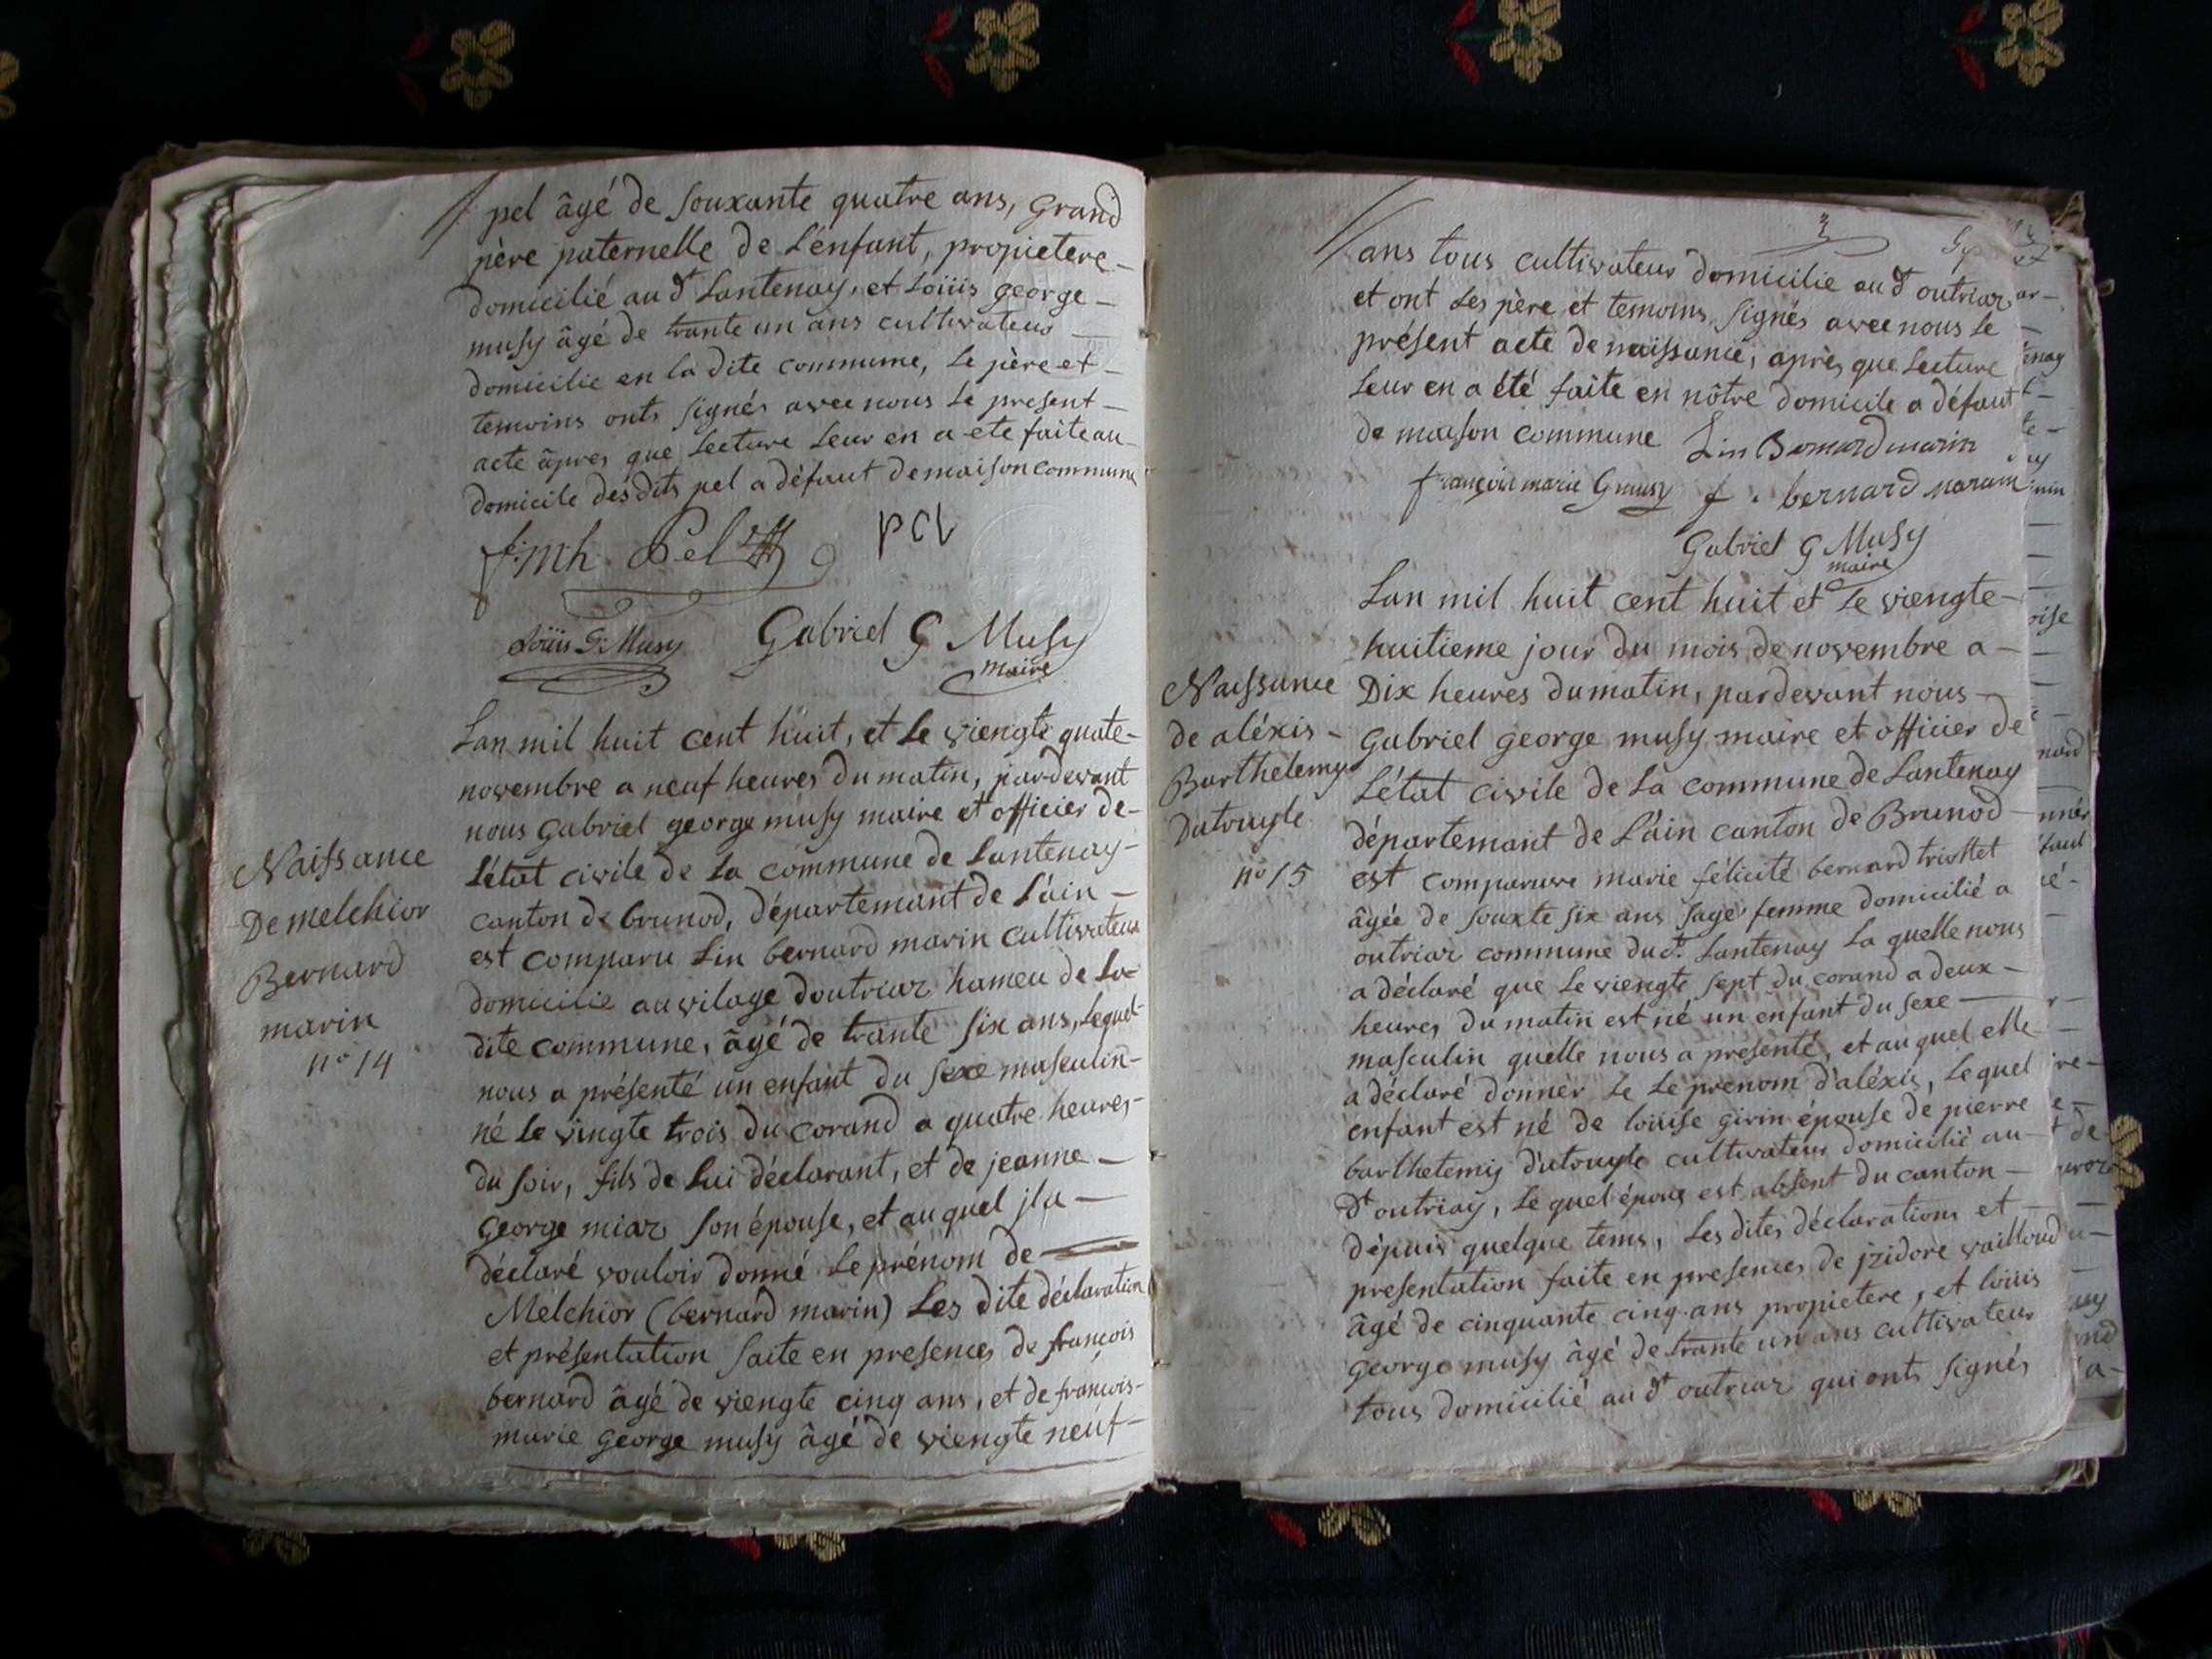 pel âgé de souxante quatre ans, grand
père paternelle de L'enfant, propietere
domicilié au dt Lantenay, et Loüis george
musy âgé de trante un ans cultivateur
domicilie en la dite commune, Le père et
temoins onts signés avec nous Le present
acte âpres que Lecture Leur en a ete faite au
domicile désdits pel a défaut de maison commune
f. m h. Pel
pel
Loüis G. Musy
Gabriel G Musy
maire
Naissance
De melchior
Bernard
marin
no 14
Lan mil huit cent huit, et Le viengte quate
novembre a neuf heures du matin, pardevant
nous gabriel george musy maire et officier de
L'état civile de La commune de Lantenay
canton de brunod, département de L'ain
est comparu Lin bernard marin cultivateur
domicilie au vilage doutriar hameu de La
dite commune, âgé de trante six ans, Lequel
nous a présenté un enfant du sexe masculin
né Le vingte trois du corand a quatre heures
du soir, fils de Lui déclarant, et de jeanne
george miar son épouse, et au quel jl a
déclaré vouloir donné Le prénom de
Melchior (bernard marin) Les dite déclaration
et présentation faite en presences de françois
bernard âgé de viengte cinq ans, et de françois
marie george musy âgé de viengte neuf
ans tous cultivateur domicilie au dt outriar
et ont Les père et temoins signés avec nous Le
présent acte de naissance, après que Lecture
Leur en a été faite en nôtre domicile a défaut
de maison commune Lin Bernard marin
françois marie G musy f. bernard marain
Gabriel G Musy
maire
Naissance
de aléxis
Barthelemy
Dutruyle
no 15
Lan mil huit cent huit et Le viengte
huitieme jour du mois de novembre a
Dix heures du matin, pardevant nous
gabriel george musy maire et officier de
L'état civile de La commune de Lantenay
département de L'ain canton de Brunod
est comparure marie félicité bernard triottet
âgée de souxte six ans sage femme domicilié a
outriar commune dudt. Lantenay La quelle nous
a déclaré que Le viengte sept du corand a deux
heures du matin est né un enfant du sexe
masculin quelle nous a presenté, et au quel elle
a déclaré donner Le Le prenom d'aléxis, Lequel
enfant est né de loüise girin épouse de pierre
barthelemij dutruyle cultivateur domicilié au
dt outriay, Le quel époux est absent du canton
dépuis quelque tems, Les dites déclarations et
presentation faite en presences de jzidore vailloud
âgé de cinquante cinq ans propietere, et loüis
george musy âgé de trante un ans cultivateur
tous domicilié au dt outriar qui onts signés